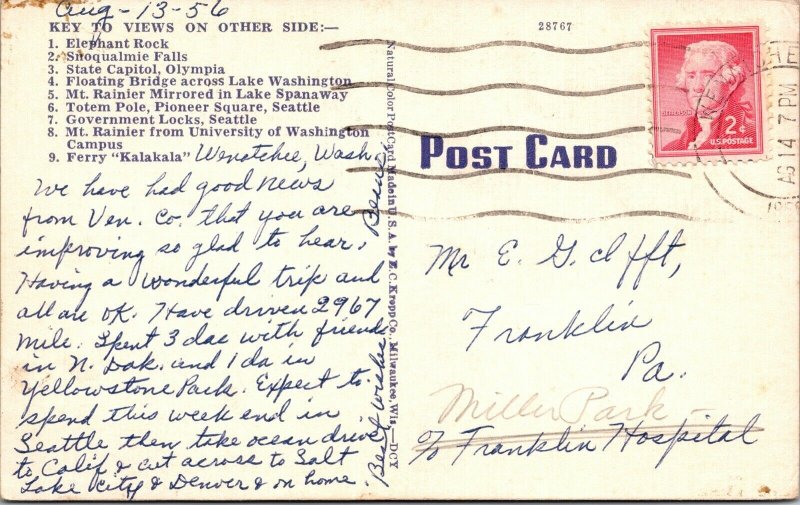 Aug-13-56
KEY TO VIEWS ON OTHER SIDE:—
1. Elephant Rock
2. Snoqualmie Falls
3. State Capitol, Olympia
4. Floating Bridge across Lake Washington
5. Mt. Rainier Mirrored in Lake Spanaway
6. Totem Pole, Pioneer Square, Seattle
7. Government Locks, Seattle
8. Mt. Rainier from University of Washington
Campus
9. Ferry "Kalakala"
Wenatchee, Wash.
We have had good news
from Ven. Co. that you are
improving so glad to hear.
Having a wonderful trip and
all are OK. Have driven 2967
mile. Spent 3 das with friends
in N. Dak. and 1 da in
Yellowstone Park. Expect to
spend this week end in
Seattle then take ocean drive
to Calif & cut across to Salt
Lake City & Denver & on home.
Best wishes,
Natural Color Post Card Made in U.S.A. by E. C. Kropp Co., Milwaukee, Wis.—DCY
28767
POST CARD
JEFFERSON
2¢
U.S. POSTAGE
AG 14
7 PM
Mr E. G. Clifft,
Franklin
Pa.
Miller Park
c/o Franklin Hospital